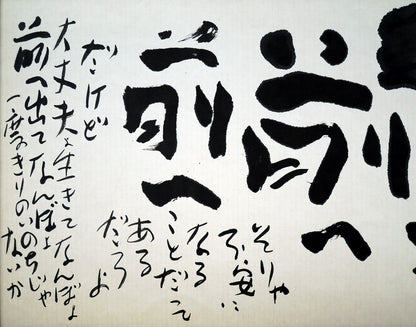 前へ
前へ
そりゃ
不安に
なる
ことだって
ある
だろうよ
だけど
大丈夫、生きてなんぼよ
前へ出てなんぼよ
一度きりのいのちじゃ
ないか